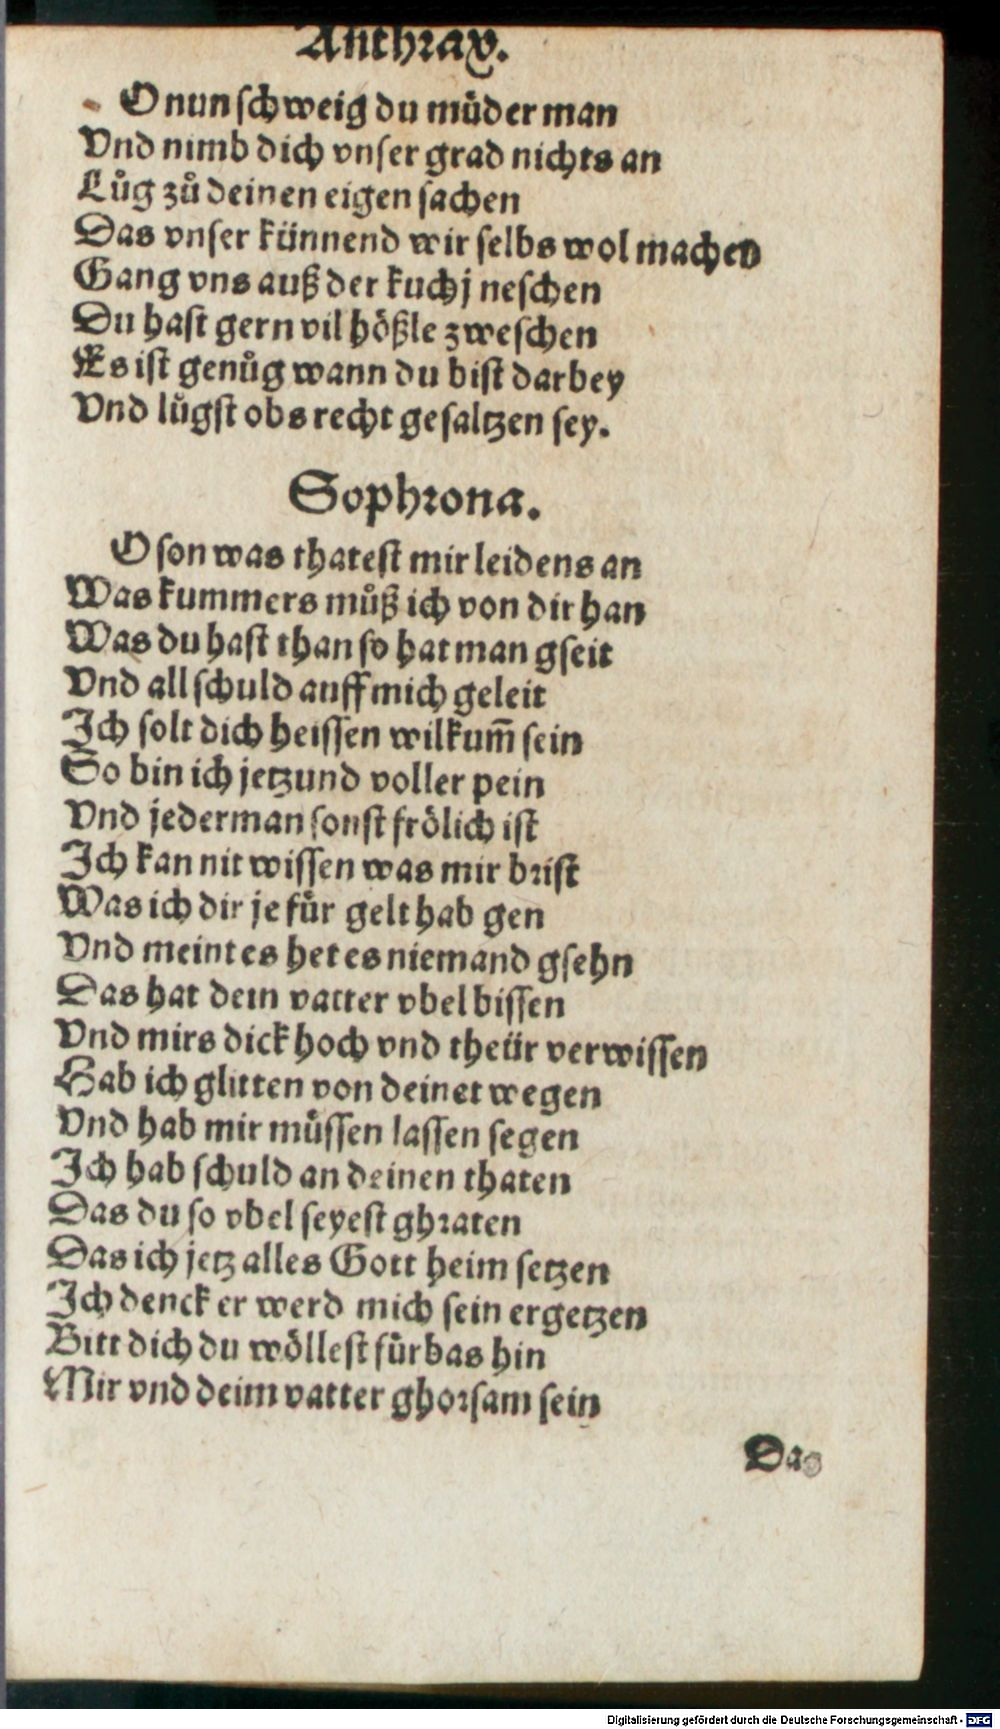 Anthrax.
O nun schweig du müder man
Vnd nimb dich vnser grad nichts an
Lůg zů deinen eigen sachen
Das vnser künnend wir selbs wol machen
Gang vns auß der kuchj neschen
Du hast gern vil hößle zweschen
Es ist genůg wann du bist darbey
Vnd lůgst obs recht gesaltzen sey.
Sophrona.
O son was thatest mir leidens an
Was kummers můß ich von dir han
Was du hast than so hat man gseit
Vnd all schuld auff mich geleit
Ich solt dich heissen wilkum̃ sein
So bin ich jetzund voller pein
Vnd jederman sonst frölich ist
Ich kan nit wissen was mir brist
Was ich dir je für gelt hab gen
Vnd meint es het es niemand gsehn
Das hat dein vatter vbel bissen
Vnd mirs dick hoch vnd theür verwissen
Hab ich glitten von deinet wegen
Vnd hab mir müssen lassen segen
Ich hab schuld an deinen thaten
Das du so vbel seyest ghraten
Das ich jetz alles Gott heim setzen
Ich denck er werd mich sein ergetzen
Bitt dich du wöllest fürbas hin
Mir vnd deim vatter ghorsam sein
Das
Digitalisierung gefördert durch die Deutsche Forschungsgemeinschaft - DFG